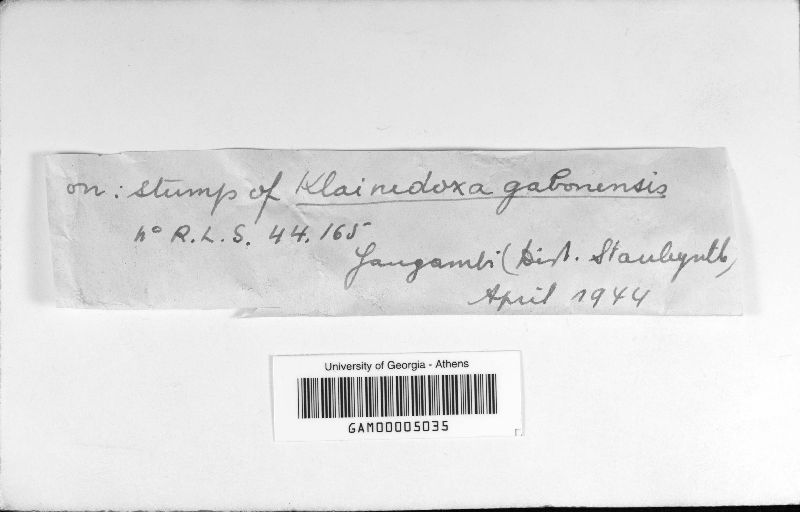 on: stump of Klainedoxa gabonensis
n° R.L.S. 44.165
Yangambi (Dist. Stanleyville)
April 1944
University of Georgia - Athens
GAM00005035